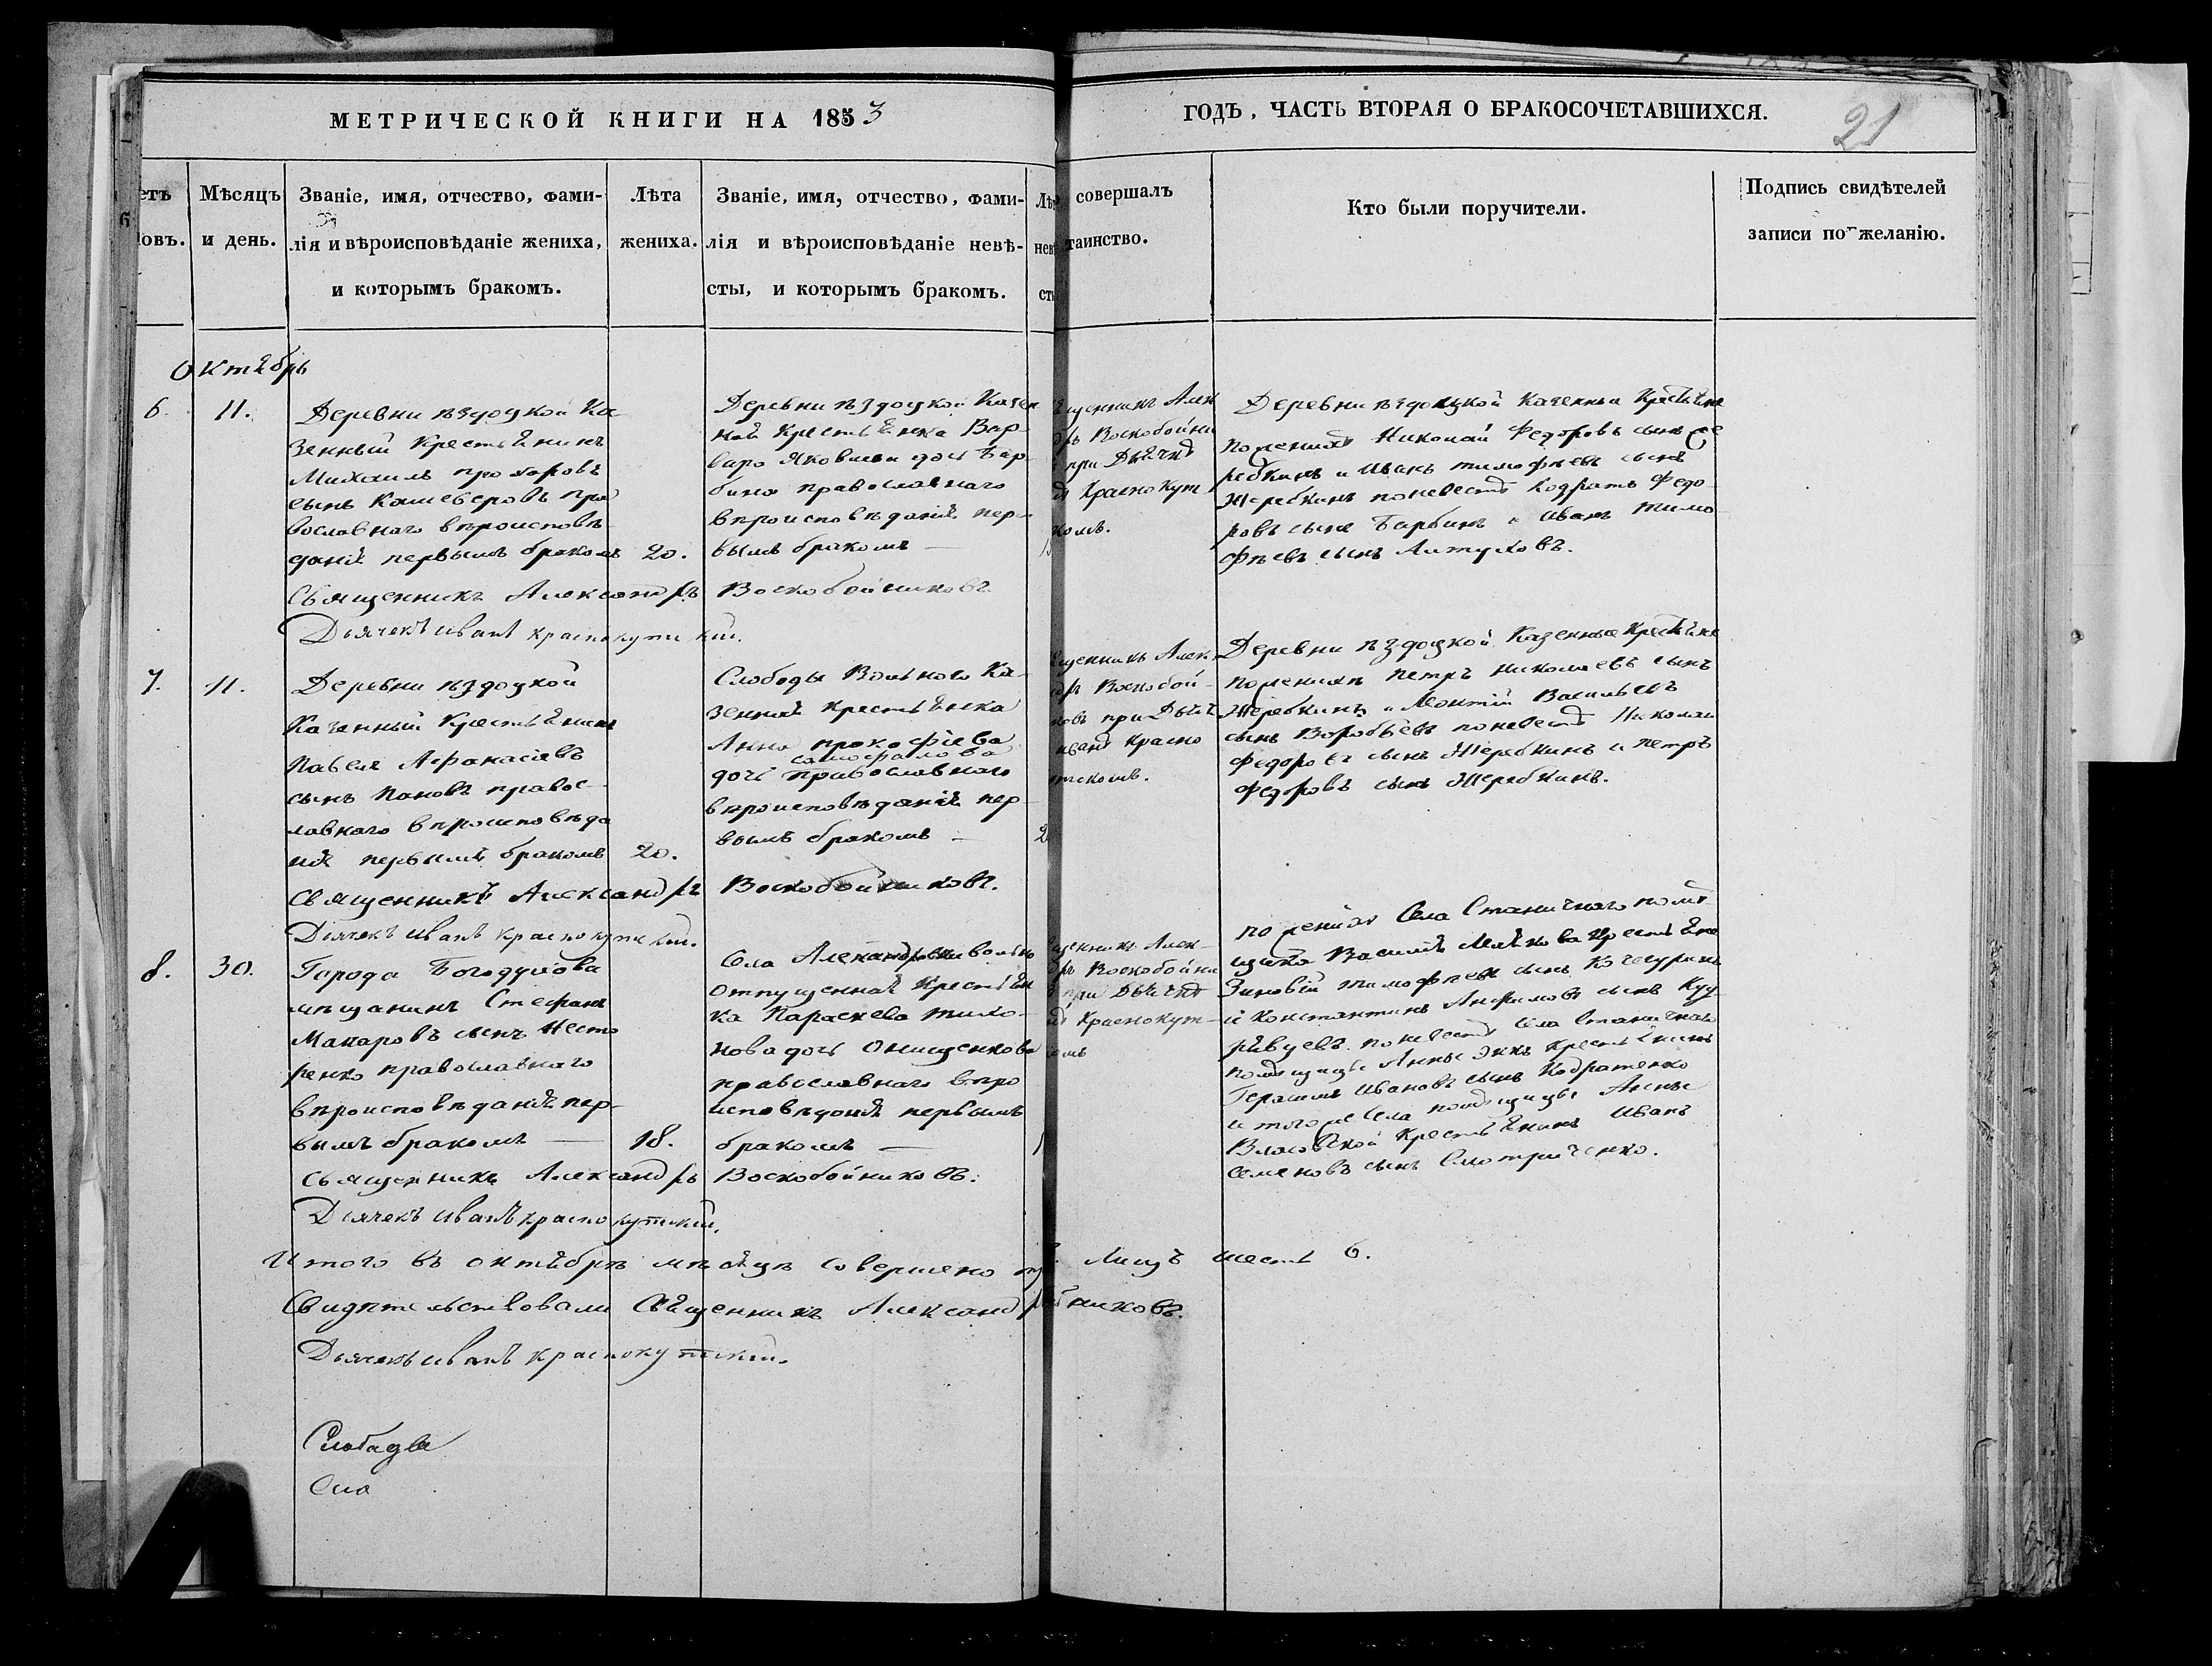 МЕТРИЧЕСКОЙ КНИГИ НА 1853
ГОДЪ, ЧАСТЬ ВТОРАЯ О БРАКОСОЧЕТАВШИХСЯ.
21
Мѣсяцъ
и день.
Званіе, имя, отчество, фами-
лія и вѣроисповѣданіе жениха,
и которымъ бракомъ.
Лѣта
жениха.
Званіе, имя, отчество, фами-
лія и вѣроисповѣданіе невѣ-
сты, и которымъ бракомъ.
совершалъ
таинство.
Кто были поручители.
Подпись свидѣтелей
записи по желанію.
Октябрь
6.
11.
Деревни ѣздоцкой Ка-
зенный Крестьянинъ
Михаилъ прохоровъ
сынъ Кашеверовъ пра
вославнаго вѣроисповѣ-
данія первымъ бракомъ
20.
Деревни ѣздоцкой Казен
ная Крестьянка Вар-
вара Яковлева дочь Бар-
бина православнаго
вѣроисповѣданія пер-
вымъ бракомъ —
Воскобойни
при Дьячкѣ
Краснокут
Деревни ѣздоцкой Казенныи Крестьяне
по женихѣ Николай Федоровъ сынъ Же
ребкинъ и Иванъ тимофѣевъ сынъ
Жеребкинъ по невестѣ Кодратъ Федо
ровъ сынъ Барбинъ и Иванъ тимо
фѣевъ сынъ Алтуховъ.
Священникъ Александръ Воскобойниковъ
Дьячекъ Иванъ краснокутскій.
7.
11.
Деревни ѣздоцкой
Казенный Крестьянинъ
Павелъ Афанасіевъ
сынъ Пановъ правос-
лавнаго вѣроисповѣда
нія первымъ бракомъ
20.
Слободы Вольнаго Ка-
зенная крестьянка
Анна прокофіева
дочь православнаго
вѣроисповѣданія пер-
вымъ бракомъ —
Воскобой-
при Дьячк
Иванѣ Красно
Деревни ѣздоцкой Казенные Крестьяне
по женихѣ Петръ николаевъ сынъ
Жеребкинъ и Леонтій Васильевъ
сынъ Воробьевъ по невестѣ Николай
Федоровъ сынъ Жеребкинъ и петръ
Федоровъ сынъ Жеребкинъ.
Священникъ Александръ Воскобойниковъ.
Дьячекъ Иванъ краснокутскій.
8.
30.
Города Богодухова
мѣщанинъ Стефанъ
Макаровъ сынъ Несте
ренко православнаго
вѣроисповѣданія пер-
вымъ бракомъ —
18.
Села Александровки вольно
отпущенная Крестьян
ка Параскева тихо-
нова дочь Онищенкова
православнаго вѣро
исповѣданія первымъ
бракомъ —
Воскобойни
при Дьячкѣ
Краснокут-
по женихѣ Села Станичнаго помѣ
щика Василія крестьяне
Зиновій тимофѣевъ сынъ
и Константинъ сынъ
по невестѣ Села Станичнаго
помѣщицы Анны крестьянинъ
Герасимъ Ивановъ сынъ Кодратенко
и того же Села помѣщицы Анны
Власовской Крестьянинъ Иванъ
Семеновъ сынъ Смотриченко.
Священникъ Александръ Воскобойниковъ.
Дьячекъ Иванъ краснокутскій.
Итого въ октябрѣ мѣсяцѣ совершено Лицъ шесть 6.
Свидѣтельствовали Священникъ Александръ никовъ.
Дьячекъ Иванъ краснокутскій.